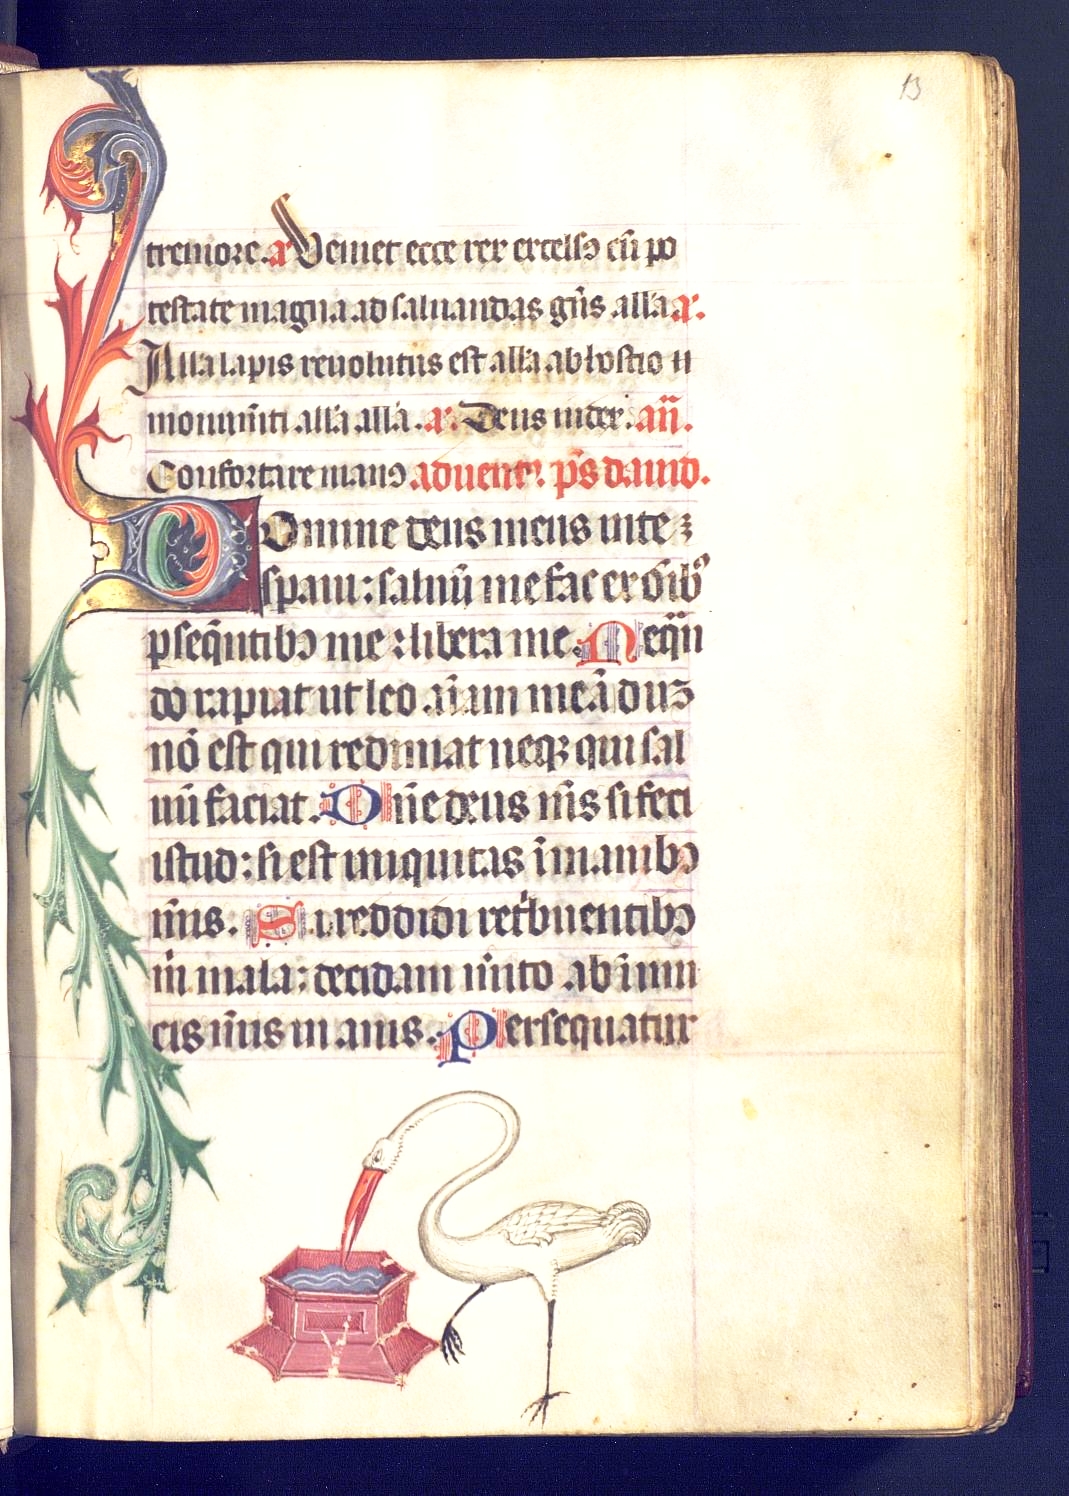 13
tremore. a Veniet ecce rex excelsꝯ cū po
testate magna ad saluandas gn̄s all'a a.
All'a lapis reuolutus est all'a ab hostio u
monum̄ti all'a all'a. a. Deus iudex. an̄.
Confortare manꝯ aduent'. p̄s dauid.
Domine deus meus in te ꝫ
speraui: saluū me fac ex om̄ibꝰ
ꝑseq̄ntibꝯ me: libera me. Neqn̄
do rapiat ut leo aīam meā duꝫ
nō est qui redimat neqꝫ qui sal
uū faciat. Dn̄e deus m̄s si feci
istud: si est iniquitas ī manibꝯ
m̄is. Si reddidi ret'buentibꝯ
m̄ mala: decidam m'ito ab inimi
cis m̄is inanis. Persequatur